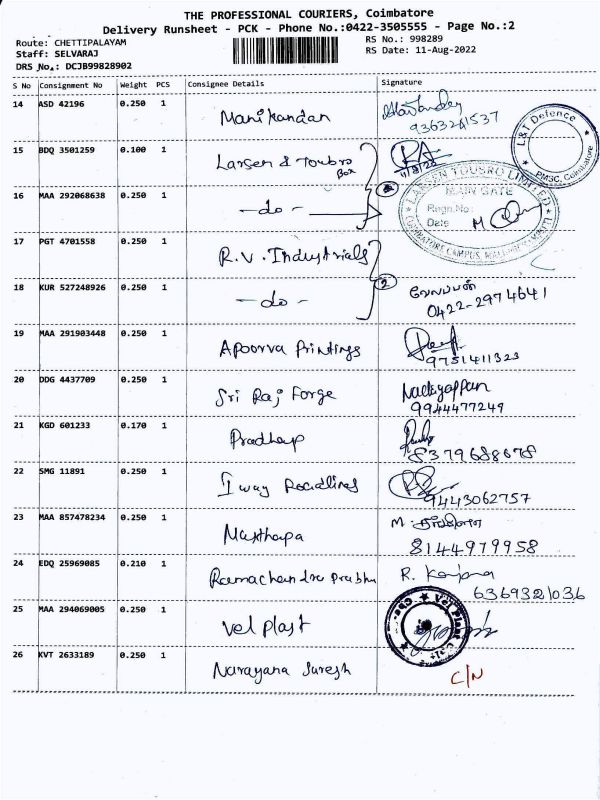 THE PROFESSIONAL COURIERS, Coimbatore
Delivery Runsheet - PCK - Phone No.:0422-3505555 - Page No.:2
Route: CHETTIPALAYAM
RS No.: 998289
Staff: SELVARAJ
RS Date: 11-Aug-2022
DRS No.: DCJB99828902
S No Consignment No Weight PCS Consignee Details Signature
14 ASD 42196 0.250 1 Manikandan
9363241537
L&T Defence
PMSC, Coimbatore
15 BDQ 3501259 0.100 1 Larsen & Toubro
Box
11/8/20
16 MAA 292068638 0.250 1 - do -
LARSEN TOUBRO LIMITED
MAIN GATE
Regn.No:
Date
17 PGT 4701558 0.250 1 R.V. Industrials
18 KUR 527248926 0.250 1 - do - 2
வேலப்பன்
0422-2974641
19 MAA 291903448 0.250 1 Apoorva Printings
9751411323
20 DDG 4437709 0.250 1 Sri Raj Forge
9944477249
21 KGD 601233 0.170 1 Pradhap
8379688678
22 SMG 11891 0.250 1 I way
9443062757
23 MAA 857478234 0.250 1 Masthapa
M.
8144979958
24 EDQ 25969085 0.210 1 Ramachandra Prabhu R.
6369321036
25 MAA 294069005 0.250 1 Vel Plast
Vel Plast
26 KVT 2633189 0.250 1 Narayana Suresh C/N